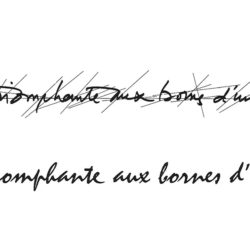 iomphante aux bornes d'u
omphante aux bornes d'